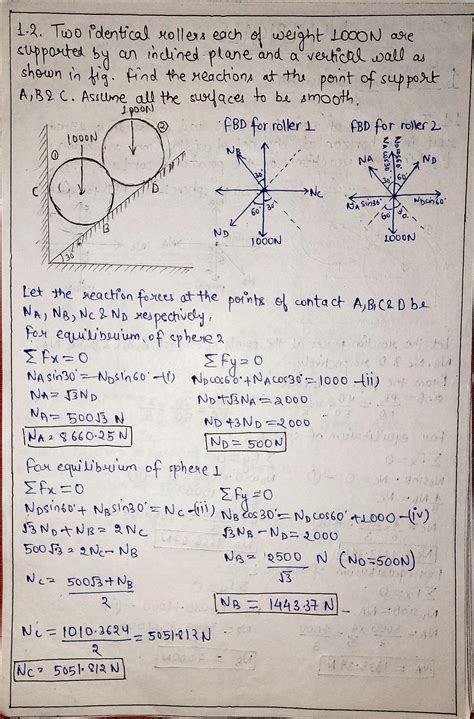 1.2. Two identical rollers each of weight 1000N are
supported by an inclined plane and a vertical wall as
shown in fig. find the reactions at the point of support
A, B & C. Assume all the surfaces to be smooth.
1000N
1000N
①
②
C
B
D
30°
FBD for roller 1
NB
30°
NC
60° 30°
ND
1000N
FBD for roller 2
NA
NA cos30°
ND
30° 60°
NA sin30°
ND sin60°
60°
1000N
Let the reaction forces at the points of contact A, B, C & D be
NA, NB, NC & ND respectively,
For equilibrium, of sphere 2
ΣFx = 0
NA sin30° = ND sin60° -(i)
NA = √3 ND
NA = 500√3 N
NA = 8660.25 N
ΣFy = 0
ND cos60° + NA cos30° = 1000 -(ii)
ND + √3 NA = 2000
ND + 3ND = 2000
ND = 500N
For equilibrium of sphere 1
ΣFx = 0
ND sin60° + NB sin30° = NC -(iii)
√3 ND + NB = 2NC
500√3 = 2NC - NB
NC = 500√3 + NB
2
NC = 1010.3624
2
= 5051.812 N
NC = 5051.812 N
ΣFy = 0
NB cos30° = ND cos60° + 1000 -(iv)
√3 NB - ND = 2000
NB = 2500
√3
N (ND = 500N)
NB = 1443.37 N